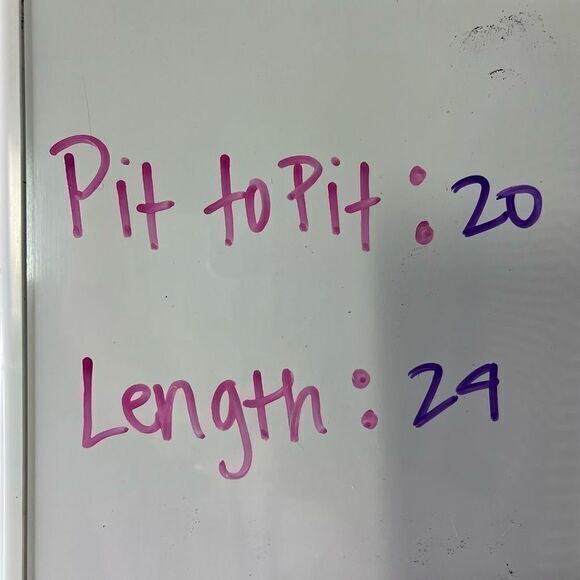 Pit to Pit: 20
Length: 24